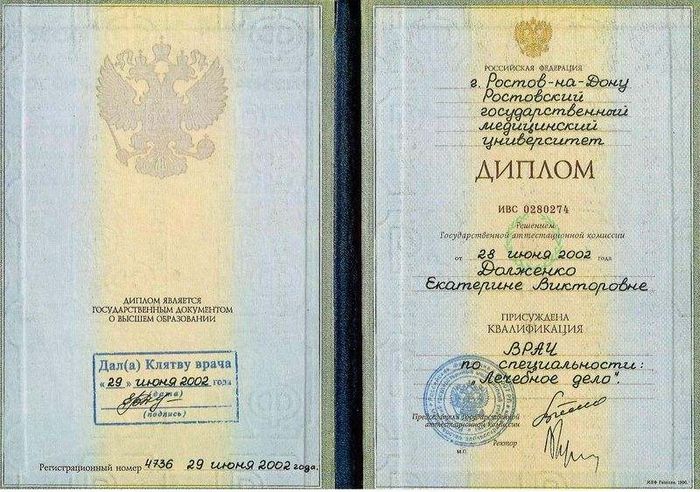 ДИПЛОМ ЯВЛЯЕТСЯ
ГОСУДАРСТВЕННЫМ ДОКУМЕНТОМ
О ВЫСШЕМ ОБРАЗОВАНИИ
Дал(а) Клятву врача
« 29 » июня 2002 года
(дата)
(подпись)
Регистрационный номер 4736 29 июня 2002 года.
РОССИЙСКАЯ ФЕДЕРАЦИЯ
г. Ростов-на-Дону
Ростовский
государственный
медицинский
университет
ДИПЛОМ
ИВС 0280274
Решением
Государственной аттестационной комиссии
от 28 июня 2002 года
Долженко
Екатерине Викторовне
ПРИСУЖДЕНА
КВАЛИФИКАЦИЯ
ВРАЧ
по специальности:
„Лечебное дело".
Председатель Государственной
аттестационной комиссии
Ректор
М.П.